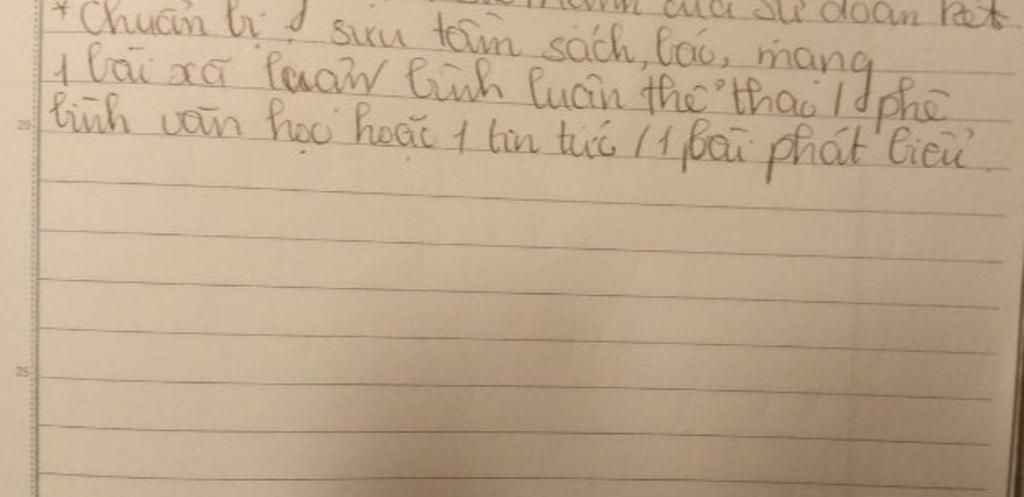 của sự đoàn kết
* Chuẩn bị: sưu tầm sách, báo, mạng
1 bài xã luận bình luận thể thao / 1 phê
bình văn học hoặc 1 tin tức / 1 bài phát biểu.
20
25